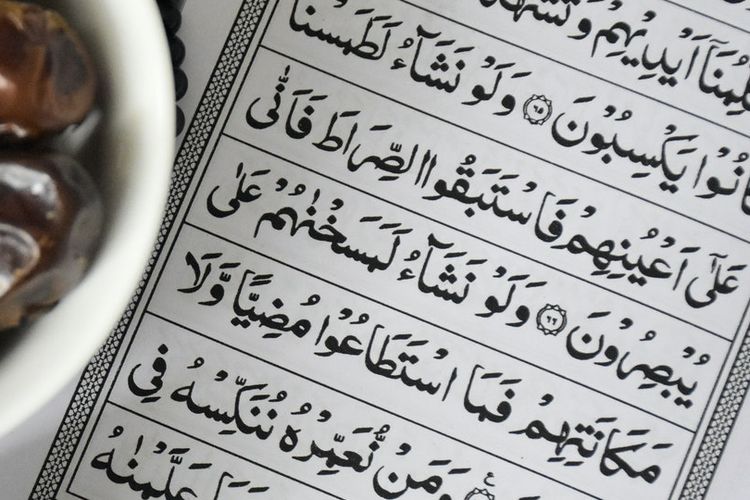 لِّمُنَآ اَيْدِيْهِمْ وَتَشْهَدُ
انُوْا يَكْسِبُوْنَ ٦٥ وَلَوْ نَشَآءُ لَطَمَسْنَا
عَلٰٓى اَعْيُنِهِمْ فَاسْتَبَقُوا الصِّرَاطَ فَاَنّٰى
يُبْصِرُوْنَ ٦٦ وَلَوْ نَشَآءُ لَمَسَخْنٰهُمْ عَلٰى
مَكَانَتِهِمْ فَمَا اسْتَطَاعُوْا مُضِيًّا وَّلَا
وَمَنْ نُّعَمِّرْهُ نُنَكِّسْهُ فِى
عَلَّمْنٰهُ